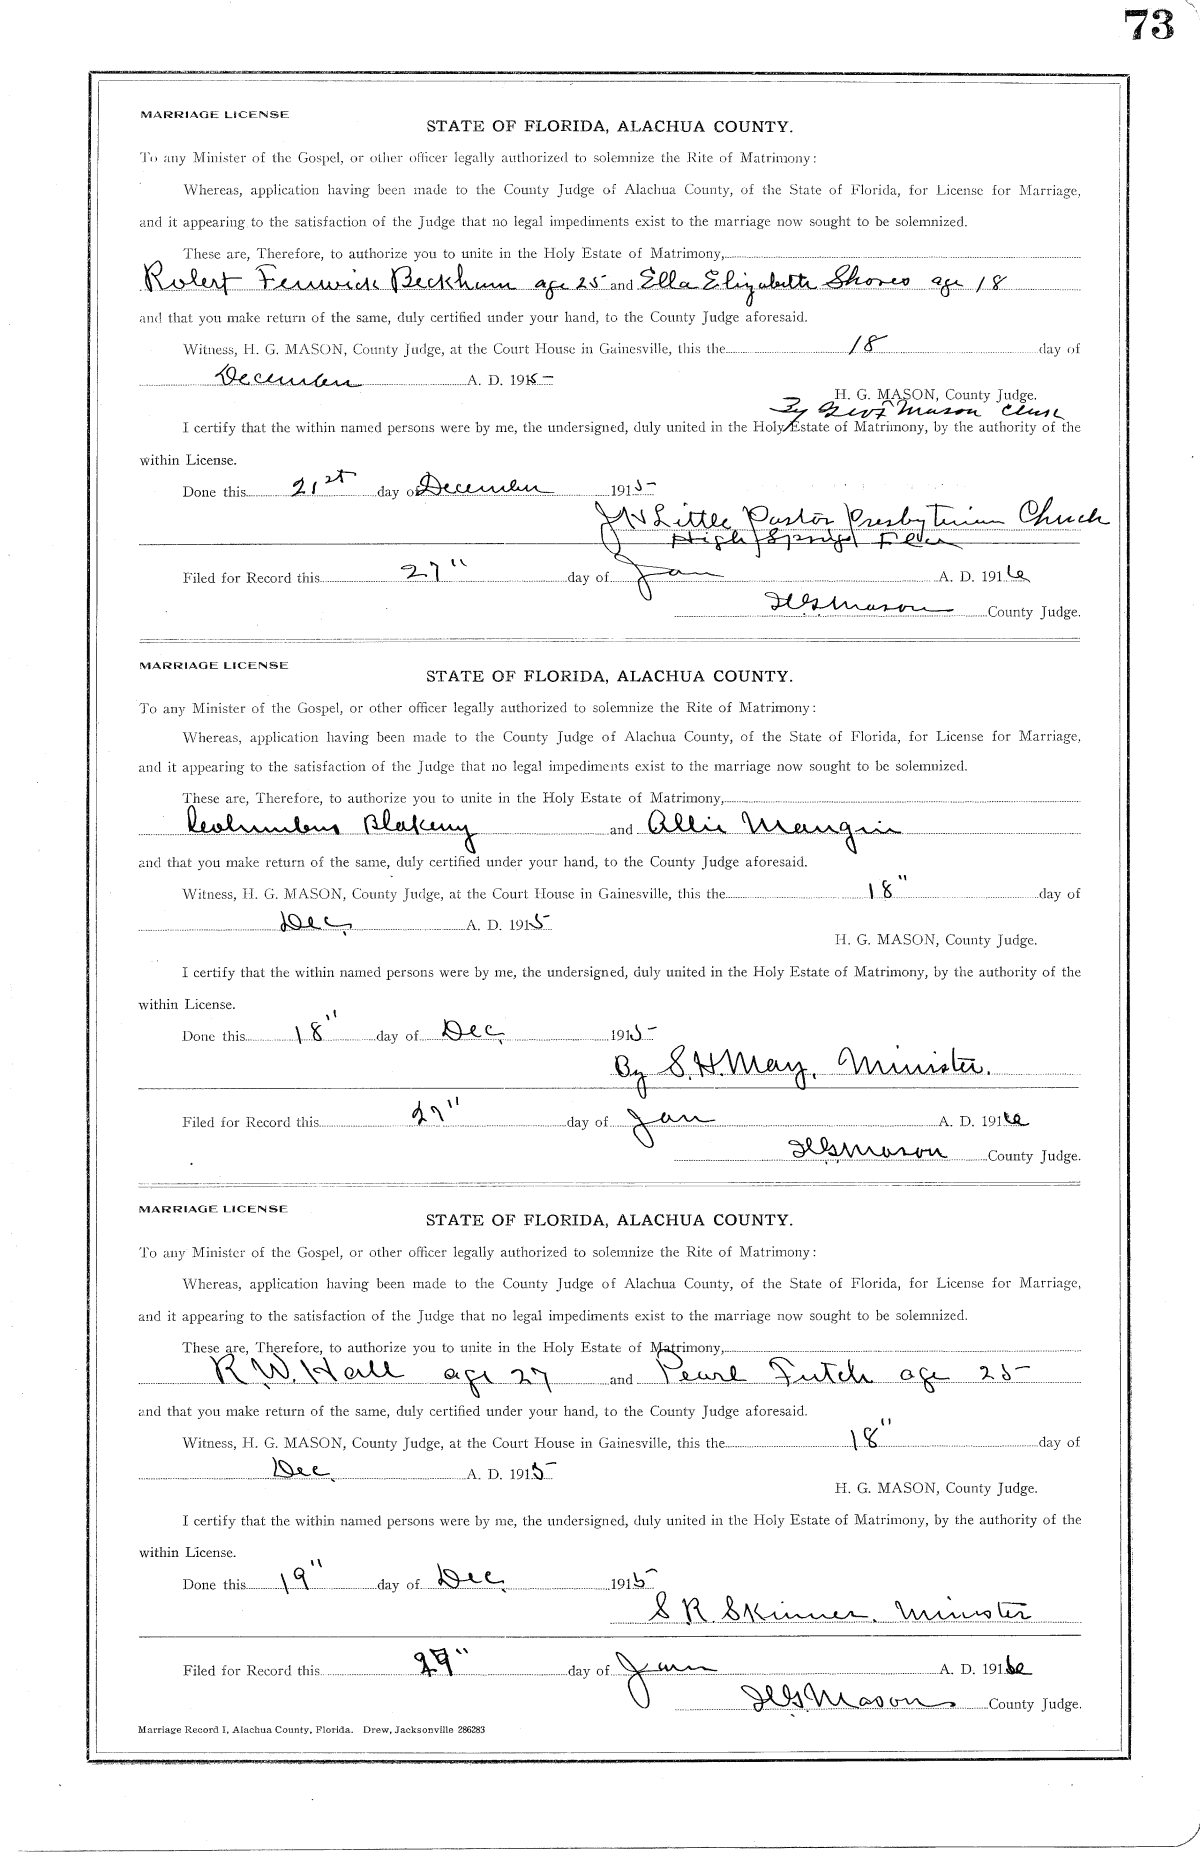 73
MARRIAGE LICENSE
STATE OF FLORIDA, ALACHUA COUNTY.
To any Minister of the Gospel, or other officer legally authorized to solemnize the Rite of Matrimony:
Whereas, application having been made to the County Judge of Alachua County, of the State of Florida, for License for Marriage,
and it appearing to the satisfaction of the Judge that no legal impediments exist to the marriage now sought to be solemnized.
These are, Therefore, to authorize you to unite in the Holy Estate of Matrimony,
Robert Fenwick Beckham age 25 and Ella Elizabeth Shores age 18
and that you make return of the same, duly certified under your hand, to the County Judge aforesaid.
Witness, H. G. MASON, County Judge, at the Court House in Gainesville, this the 18 day of
December A. D. 1915
H. G. MASON, County Judge.
By Geo F Mason Clerk
I certify that the within named persons were by me, the undersigned, duly united in the Holy Estate of Matrimony, by the authority of the
within License.
Done this 21st day of December 1915
J W Little Pastor Presbyterian Church
High Springs Fla
Filed for Record this 27" day of Jan A. D. 1916
H G Mason County Judge.
MARRIAGE LICENSE
STATE OF FLORIDA, ALACHUA COUNTY.
To any Minister of the Gospel, or other officer legally authorized to solemnize the Rite of Matrimony:
Whereas, application having been made to the County Judge of Alachua County, of the State of Florida, for License for Marriage,
and it appearing to the satisfaction of the Judge that no legal impediments exist to the marriage now sought to be solemnized.
These are, Therefore, to authorize you to unite in the Holy Estate of Matrimony,
Columbus Blakeny and Allie Mangin
and that you make return of the same, duly certified under your hand, to the County Judge aforesaid.
Witness, H. G. MASON, County Judge, at the Court House in Gainesville, this the 18" day of
Dec. A. D. 1915
H. G. MASON, County Judge.
I certify that the within named persons were by me, the undersigned, duly united in the Holy Estate of Matrimony, by the authority of the
within License.
Done this 18" day of Dec. 1915
By S. H. May, Minister.
Filed for Record this 27" day of Jan A. D. 1916
H G Mason County Judge.
MARRIAGE LICENSE
STATE OF FLORIDA, ALACHUA COUNTY.
To any Minister of the Gospel, or other officer legally authorized to solemnize the Rite of Matrimony:
Whereas, application having been made to the County Judge of Alachua County, of the State of Florida, for License for Marriage,
and it appearing to the satisfaction of the Judge that no legal impediments exist to the marriage now sought to be solemnized.
These are, Therefore, to authorize you to unite in the Holy Estate of Matrimony,
R. W. Hall age 27 and Pearl Futch age 25
and that you make return of the same, duly certified under your hand, to the County Judge aforesaid.
Witness, H. G. MASON, County Judge, at the Court House in Gainesville, this the 18" day of
Dec. A. D. 1915
H. G. MASON, County Judge.
I certify that the within named persons were by me, the undersigned, duly united in the Holy Estate of Matrimony, by the authority of the
within License.
Done this 19" day of Dec. 1915
S R Skinner, Minister
Filed for Record this day of Jan A. D. 1916
H G Mason County Judge.
Marriage Record I, Alachua County, Florida. Drew, Jacksonville 286283